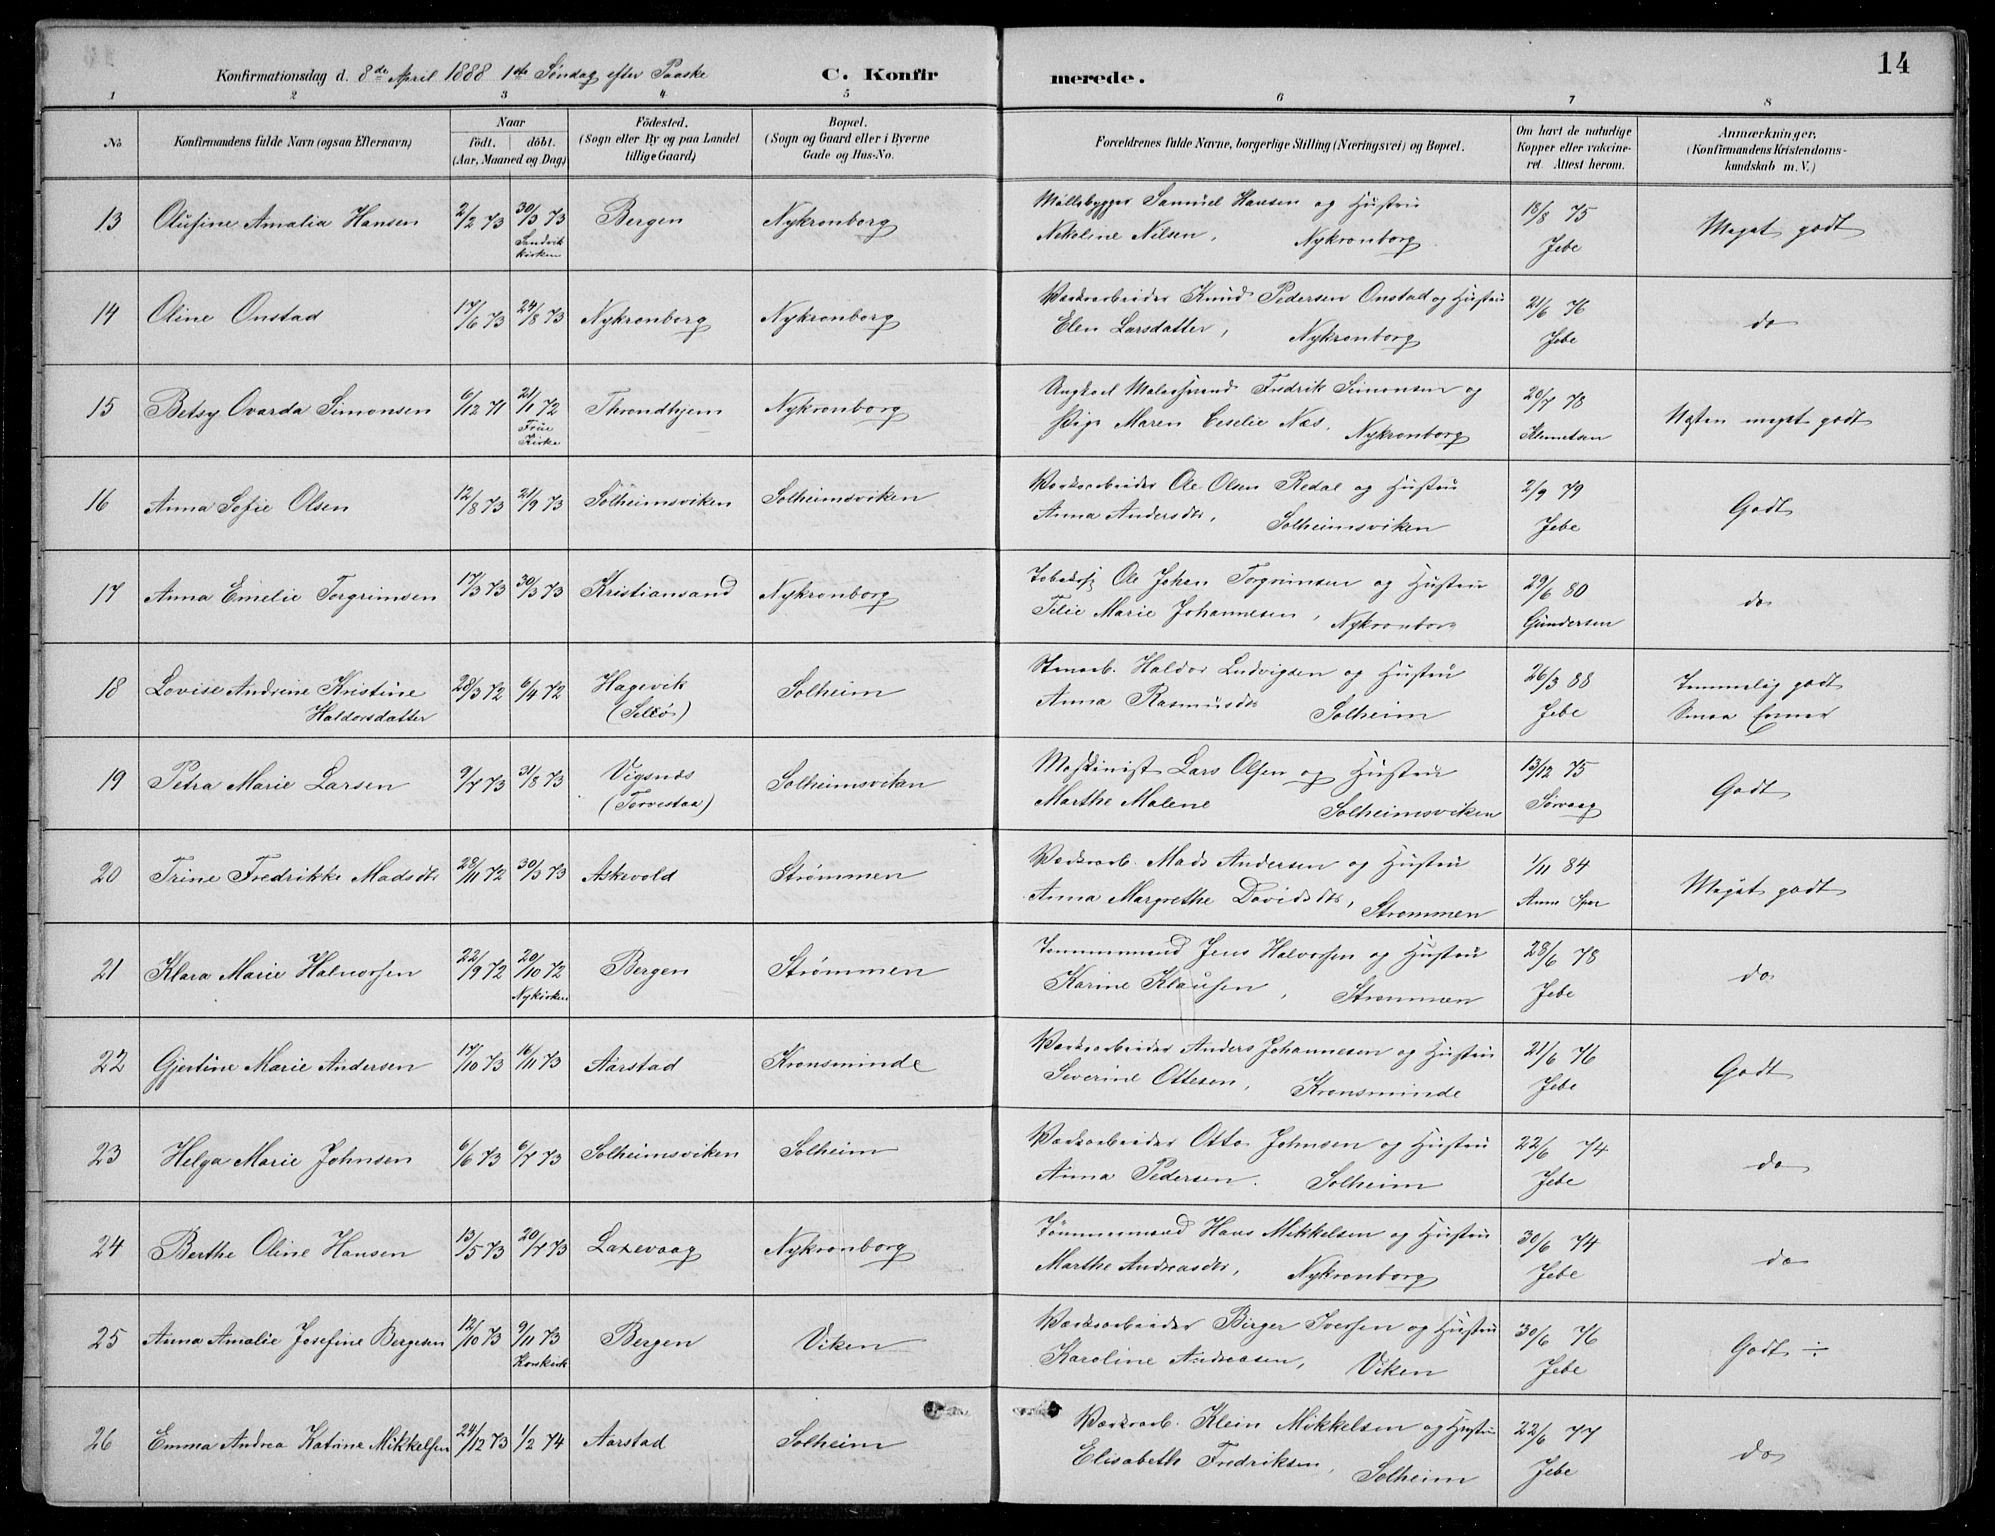 14
Konfirmationsdag d. 8de April 1888 1ste Søndag efter Paaske C. Konfirmerede.
1 2 3 4 5 6 7 8
No
Konfirmandens fulde Navn (ogsaa Efternavn)
Naar
født. døbt.
(Aar, Maaned og Dag)
Fødested.
(Sogn eller By og paa Landet
tillige Gaard)
Bopæl.
(Sogn og Gaard eller i Byerne
Gade og Hus-No.
Forældrenes fulde Navne, borgerlige Stilling (Næringsvei) og Bopæl.
Om havt de naturlige
Kopper eller vakcine-
ret. Attest herom.
Anmærkninger.
(Konfirmandens Kristendoms-
kundskab m. V.)
13 Olufine Amalia Hansen 2/2 73 30/3 73 Bergen Nykronborg Møllebygger Samuel Hansen og Hustru 18/8 75 Meget godt
Sandvik
kirken
Nikoline Nilsen, Nykronborg Jebe
14 Oline Onstad 17/6 73 24/8 73 Nykronborg Nykronborg Værksarbeider Knud Pedersen Onstad og Hustru 21/6 76 do
Elen Larsdatter, Nykronborg Jebe
15 Betsy Ovarda Simonsen 6/12 71 21/1 72 Throndhjem Nykronborg Ungkarl Malersvend Fredrik Simonsen og 20/7 78 Næsten meget godt
Frue
Kirke
Pige Maren Ceselie Næs. Nykronborg Klemetsen
16 Anna Sofie Olsen 12/8 73 21/9 73 Solheimsviken Solheimsviken Værksarbeider Ole Olsen Redal og Hustru 2/9 79 Godt
Anna Andersdtr, Solheimsviken Jebe
17 Anna Emelie Torgrimsen 17/3 73 30/3 73 Kristiansand Nykronborg Ole Johan Torgrimsen og Hustru 29/6 80 do
Tilie Marie Johannesen, Nykronborg Gundersen
18 Lovise Andrine Kristine 28/3 72 6/4 72 Hagevik Solheim Stenarb. Haldor Ludvigsen og Hustru 26/3 88 Temmelig godt
Haldorsdatter (Selløs) Anna Rasmusdtr Solheim Jebe Smaa Evner
19 Petra Marie Larsen 9/7 73 31/8 73 Vigsnæs Solheimsviken Maskinist Lars Olsen og Hustru 13/12 75 Godt
(Torvestaa) Marthe Malene Solheimsviken Sørvaag
20 Trine Fredrikke Madsdtr 28/11 72 30/3 73 Askevold Strømmen Værksarb. Mads Andersen og Hustru 1/11 84 Meget godt
Anna Margrethe Davidsdtr, Strømmen
21 Klara Marie Halvorsen 22/9 72 20/10 72 Bergen Strømmen Tømmermand Jens Halvorsen og Hustru 28/6 78 do
Nykirken
Karine Klausen, Strømmen Jebe
22 Gjertine Marie Andersen 17/10 73 16/11 73 Aarstad Kronsminde Værksarbeider Anders Johannesen og Hustru 21/6 76 Godt
Severine Ottesen, Kronsminde Jebe
23 Helga Marie Johnsen 6/6 73 6/7 73 Solheimsviken Solheim Værksarbeider Otto Johnsen og Hustru 22/6 74 do
Anna Pedersen. Solheim Jebe
24 Berthe Oline Hansen 13/5 73 20/7 73 Laxevaag Nykronborg Tømmermand Hans Mikkelsen og Hustru 30/6 74 do
Marthe Andreasdtr, Nykronborg Jebe
25 Anna Amalie Josefine Bergesen 12/10 73 9/11 73 Bergen Viken Værksarbeider Birger Iversen og Hustru 30/6 76 Godt ÷
Korskirk
Karoline Andreasen, Viken Jebe
26 Emma Andrea Katrine Mikkelsen 24/12 73 1/2 74 Aarstad Solheim Værksarb. Klein Mikkelsen og Hustru 22/6 77 do
Elisabeth Fredriksen, Solheim Jebe